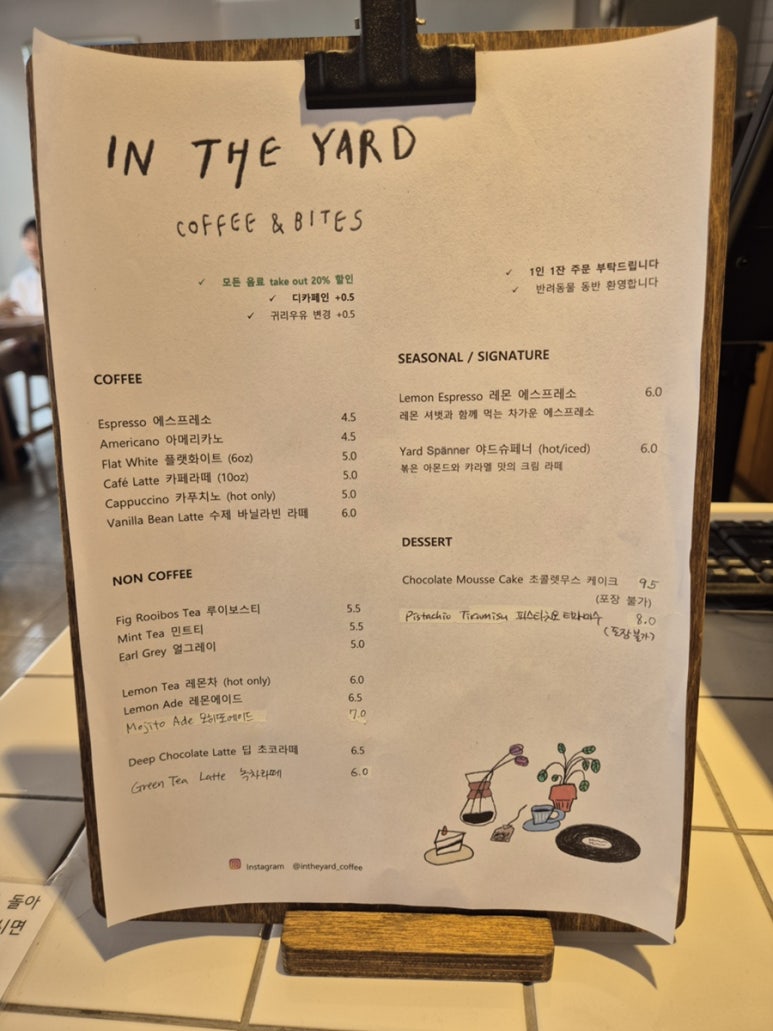 IN THE YARD
COFFEE & BITES
✓ 모든 음료 take out 20% 할인
✓ 디카페인 +0.5
✓ 귀리우유 변경 +0.5
✓ 1인 1잔 주문 부탁드립니다
✓ 반려동물 동반 환영합니다
COFFEE
Espresso 에스프레소 4.5
Americano 아메리카노 4.5
Flat White 플랫화이트 (6oz) 5.0
Café Latte 카페라떼 (10oz) 5.0
Cappuccino 카푸치노 (hot only) 5.0
Vanilla Bean Latte 수제 바닐라빈 라떼 6.0
NON COFFEE
Fig Rooibos Tea 루이보스티 5.5
Mint Tea 민트티 5.5
Earl Grey 얼그레이 5.0
Lemon Tea 레몬차 (hot only) 6.0
Lemon Ade 레몬에이드 6.5
Mojito Ade 모히또에이드 7.0
Deep Chocolate Latte 딥 초코라떼 6.5
Green Tea Latte 녹차라떼 6.0
SEASONAL / SIGNATURE
Lemon Espresso 레몬 에스프레소 6.0
레몬 셔벗과 함께 먹는 차가운 에스프레소
Yard Spänner 야드슈페너 (hot/iced) 6.0
볶은 아몬드와 카라멜 맛의 크림 라떼
DESSERT
Chocolate Mousse Cake 초콜렛무스 케이크 9.5
(포장 불가)
Pistachio Tiramisu 피스타치오 티라미수 8.0
(포장불가)
Instagram @intheyard_coffee
돌아
시면